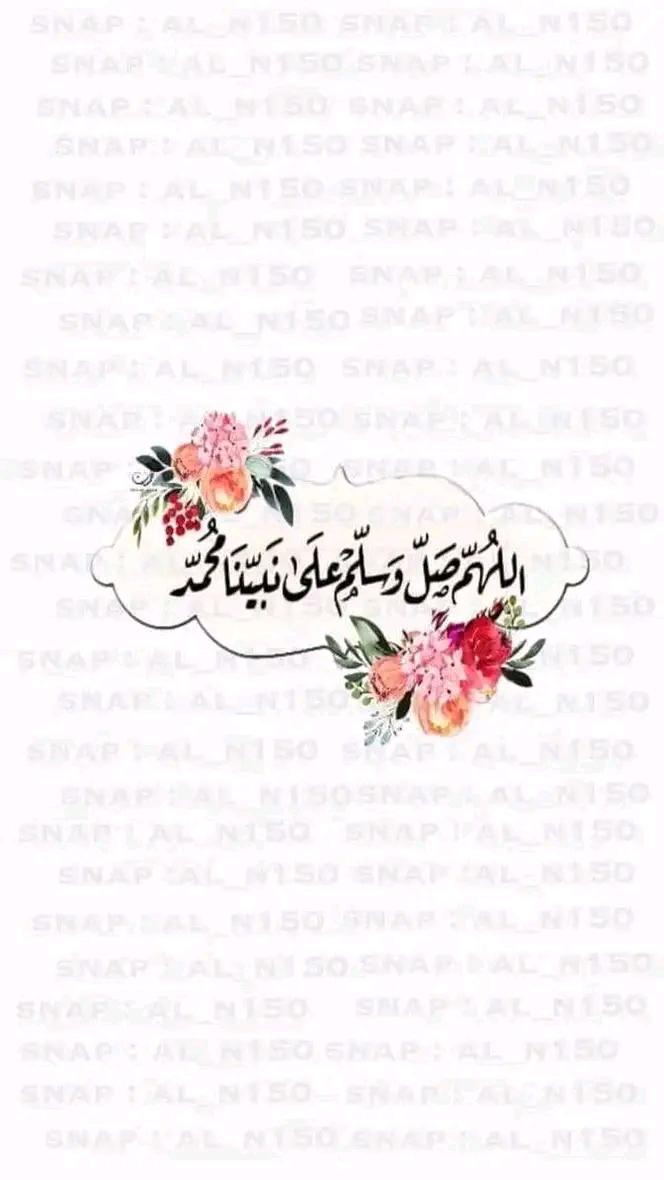 SNAP : AL_N150 SNAP : AL_N150
SNAP : AL_N150 SNAP : AL_N150
SNAP : AL_N150 SNAP : AL_N150
SNAP : AL_N150 SNAP : AL_N150
SNAP : AL_N150 SNAP : AL_N150
SNAP : AL_N150 SNAP : AL_N150
SNAP : AL_N150 SNAP : AL_N150
SNAP : AL_N150 SNAP : AL_N150
SNAP : AL_N150 SNAP : AL_N150
SNAP : AL_N150 SNAP : AL_N150
اللهم صل وسلم على نبينا محمد
SNAP : AL_N150 SNAP : AL_N150
SNAP : AL_N150 SNAP : AL_N150
SNAP : AL_N150 SNAP : AL_N150
SNAP : AL_N150 SNAP : AL_N150
SNAP : AL_N150 SNAP : AL_N150
SNAP : AL_N150 SNAP : AL_N150
SNAP : AL_N150 SNAP : AL_N150
SNAP : AL_N150 SNAP : AL_N150
SNAP : AL_N150 SNAP : AL_N150
SNAP : AL_N150 SNAP : AL_N150